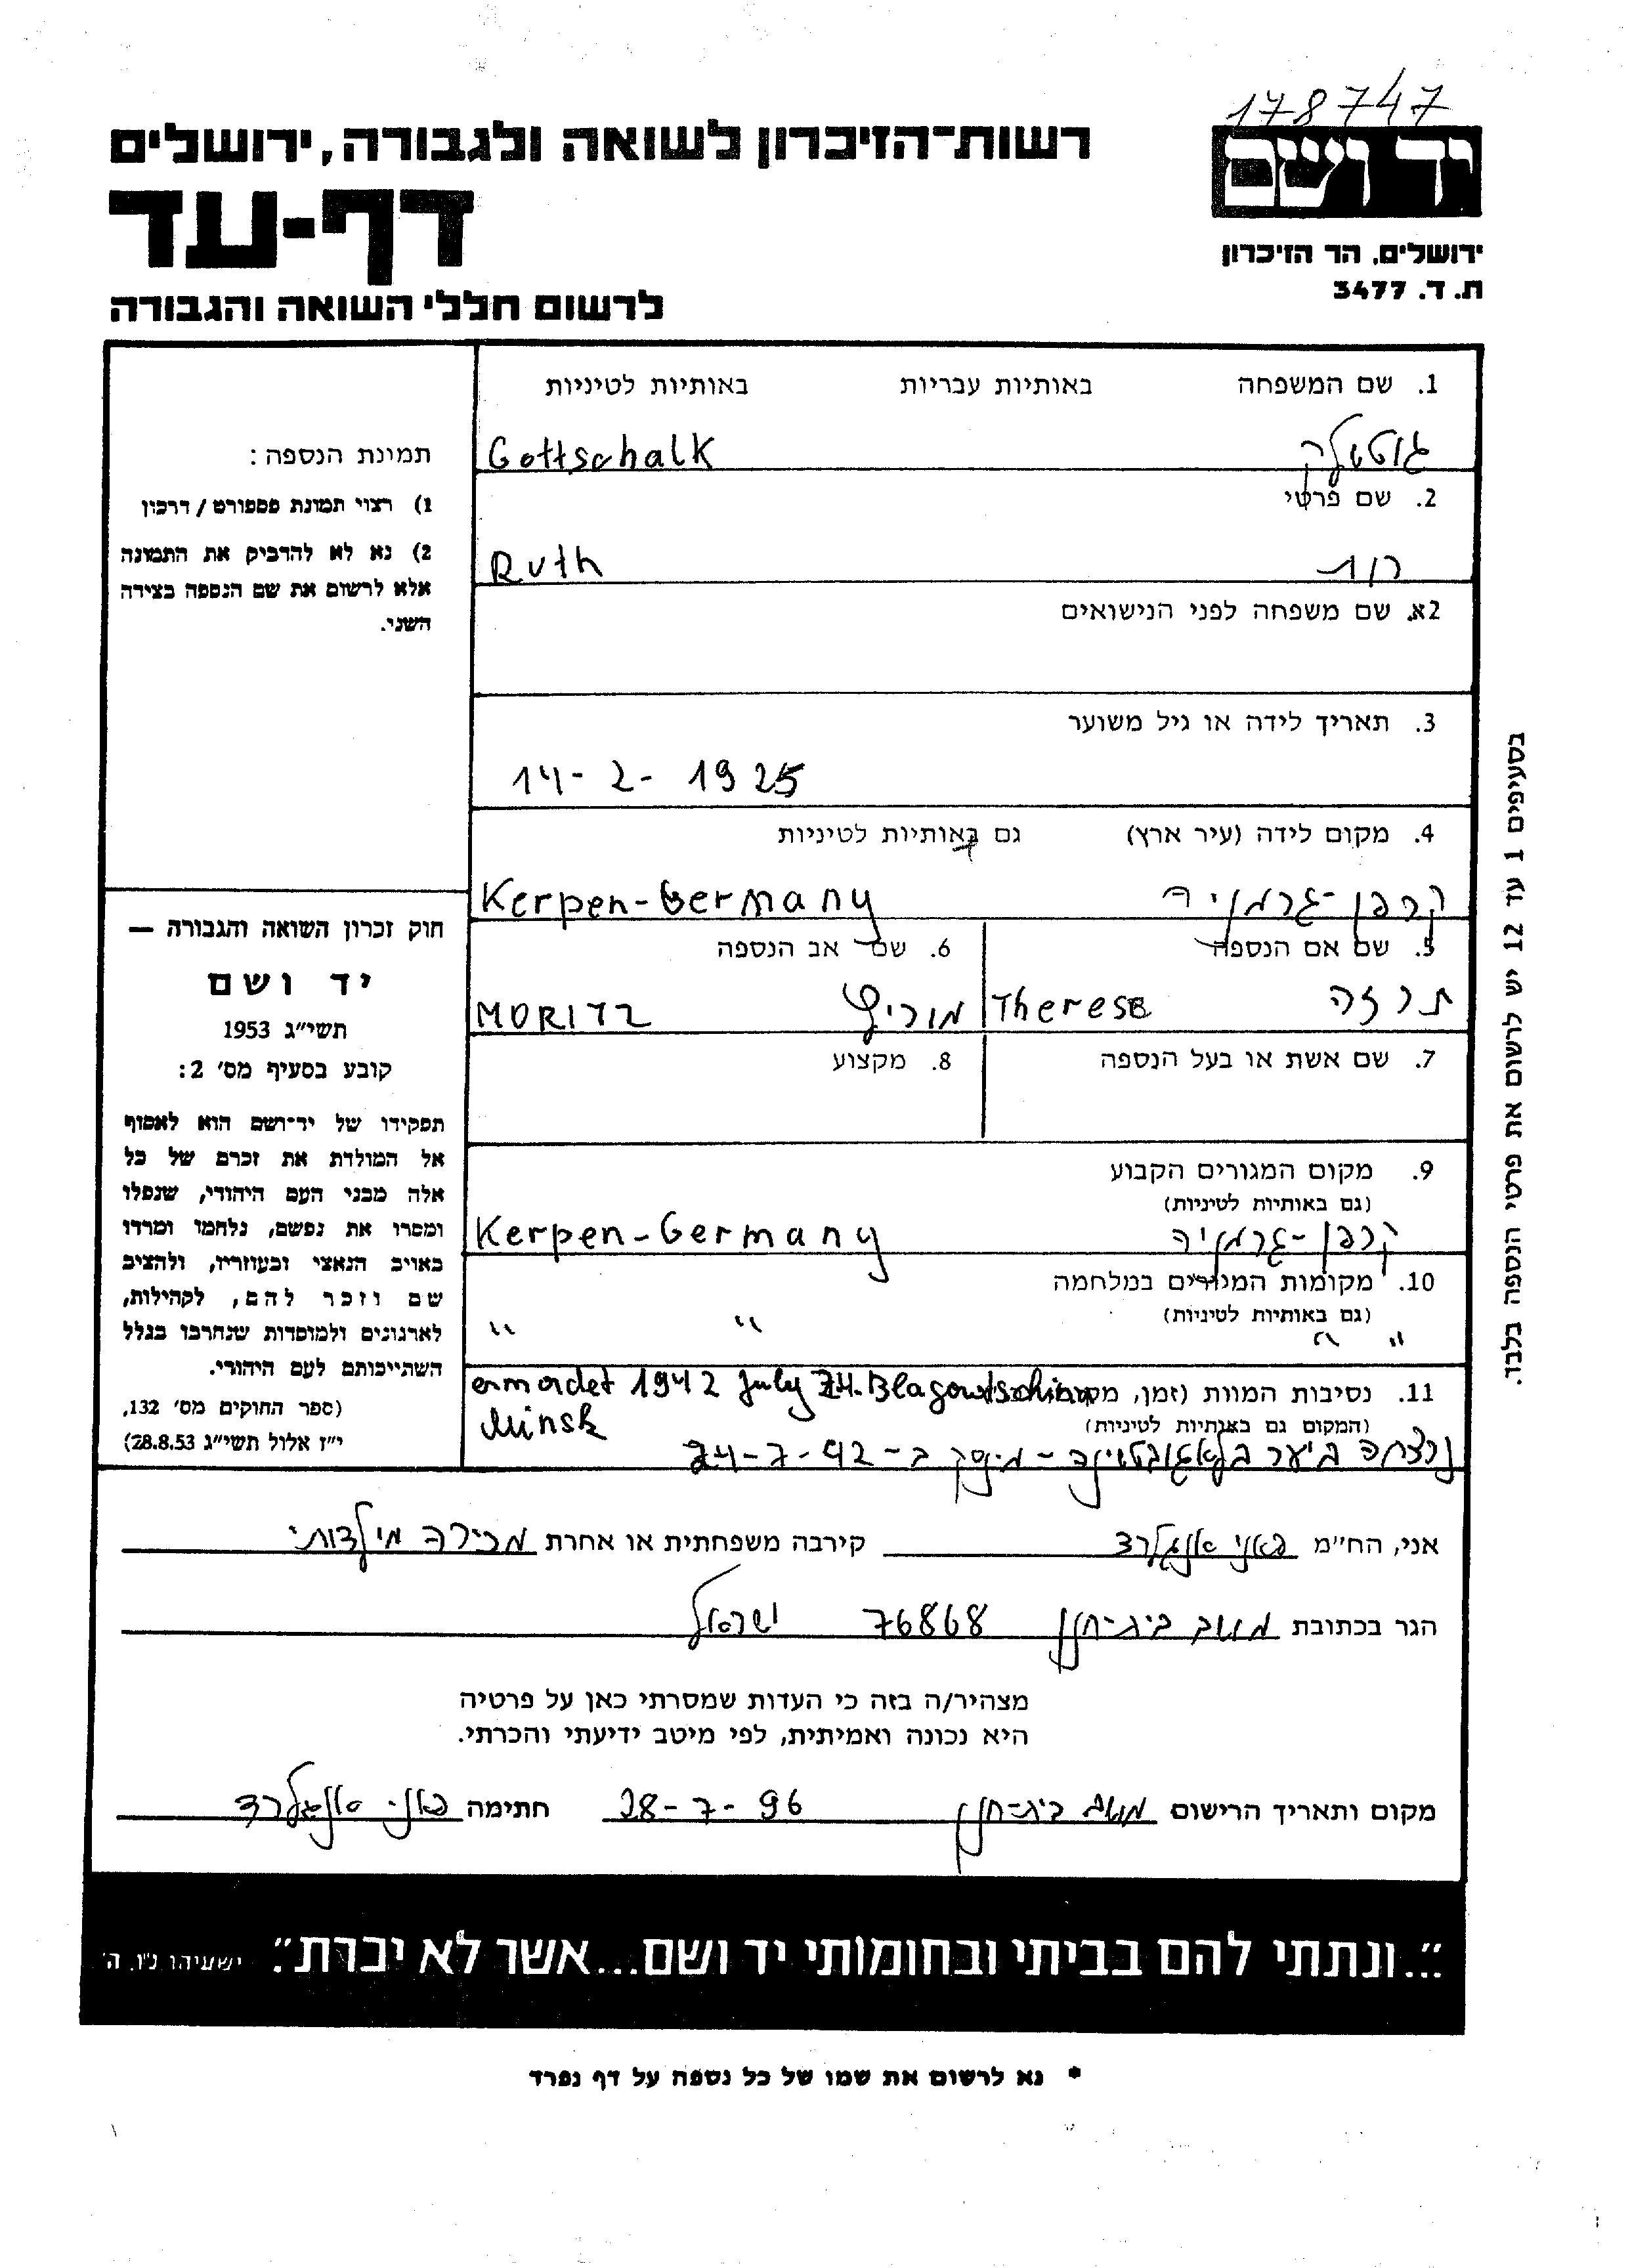 178747
יד ושם
ירושלים, הר הזיכרון
ת. ד. 3477
רשות־הזיכרון לשואה ולגבורה, ירושלים
דף-עד
לרשום חללי השואה והגבורה
1. שם המשפחה באותיות עבריות באותיות לטיניות
גוטשלק Gottschalk
2. שם פרטי
רות Ruth
2א. שם משפחה לפני הנישואים
3. תאריך לידה או גיל משוער
14-2-1925
4. מקום לידה (עיר ארץ) גם באותיות לטיניות
קרפן-גרמניה Kerpen-Germany
5. שם אם הנספה 6. שם אב הנספה
תרזה Therese מוריץ MORITZ
7. שם אשת או בעל הנספה 8. מקצוע
9. מקום המגורים הקבוע
(גם באותיות לטיניות)
קרפן-גרמניה Kerpen-Germany
10. מקומות המגורים במלחמה
(גם באותיות לטיניות)
" " " "
11. נסיבות המוות (זמן, ermordet 1942 July 24.
(המקום גם באותיות לטיניות) Minsk
נרצחה ביער - מינסק ב-24-7-42
תמונת הנספה:
1) רצוי תמונת פספורט / דרכון
2) נא לא להדביק את התמונה
אלא לרשום את שם הנספה בצידה
השני.
חוק זכרון השואה והגבורה —
יד ושם
תשי"ג 1953
קובע בסעיף מס' 2:
תפקידו של יד־ושם הוא לאסוף
אל המולדת את זכרם של כל
אלה מבני העם היהודי, שנפלו
ומסרו את נפשם, נלחמו ומרדו
באויב הנאצי ובעוזריו, ולהציב
שם וזכר להם, לקהילות,
לארגונים ולמוסדות שנחרבו בגלל
השתייכותם לעם היהודי.
(ספר החוקים מס' 132,
י"ז אלול תשי"ג 28.8.53)
בסעיפים 1 עד 12 יש לרשום את פרטי הנספה בלבד.
אני, הח"מ פאני אנגלרד קירבה משפחתית או אחרת מכירה מילדותי
הגר בכתובת מושב בית-חנן 76868 ישראל
מצהיר/ה בזה כי העדות שמסרתי כאן על פרטיה
היא נכונה ואמיתית, לפי מיטב ידיעתי והכרתי.
מקום ותאריך הרישום מושב בית-חנן 28-7-96 חתימה פאני אנגלרד
"...ונתתי להם בביתי ובחומותי יד ושם...אשר לא יכרת". ישעיהו נ"ו, ה'
* נא לרשום את שמו של כל נספה על דף נפרד